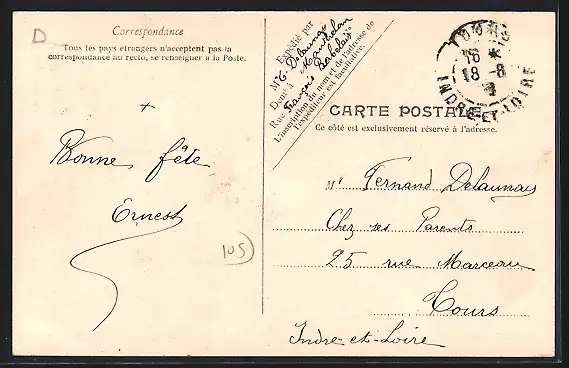 D
Correspondance
Tous les pays étrangers n'acceptent pas la
correspondance au recto, se renseigner à la Poste.
Bonne fête
Ernest
105
Expédié par
M E. Delaunay
Demt à
Rue François Rabelais
L'inscription du nom et de l'adresse de
l'expéditeur est facultative.
TOURS
16 *
18 -8
INDRE-ET-LOIRE
CARTE POSTALE
Ce côté est exclusivement réservé à l'adresse.
Mr Fernand Delaunay
Chez ses Parents
25 rue Marceau
Tours
Indre-et-Loire